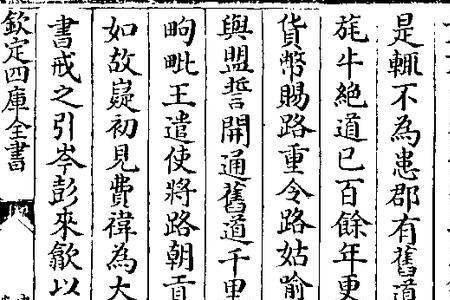 是輙不為患郡有舊道
旄牛絶道已百餘年更
貨幣賜路重令路姑喻
與盟誓開通舊道千里
㽛毗王遣使將路朝貢
如故嶷初見費禕為大
書戒之引岑彭來歙以
欽定四庫全書